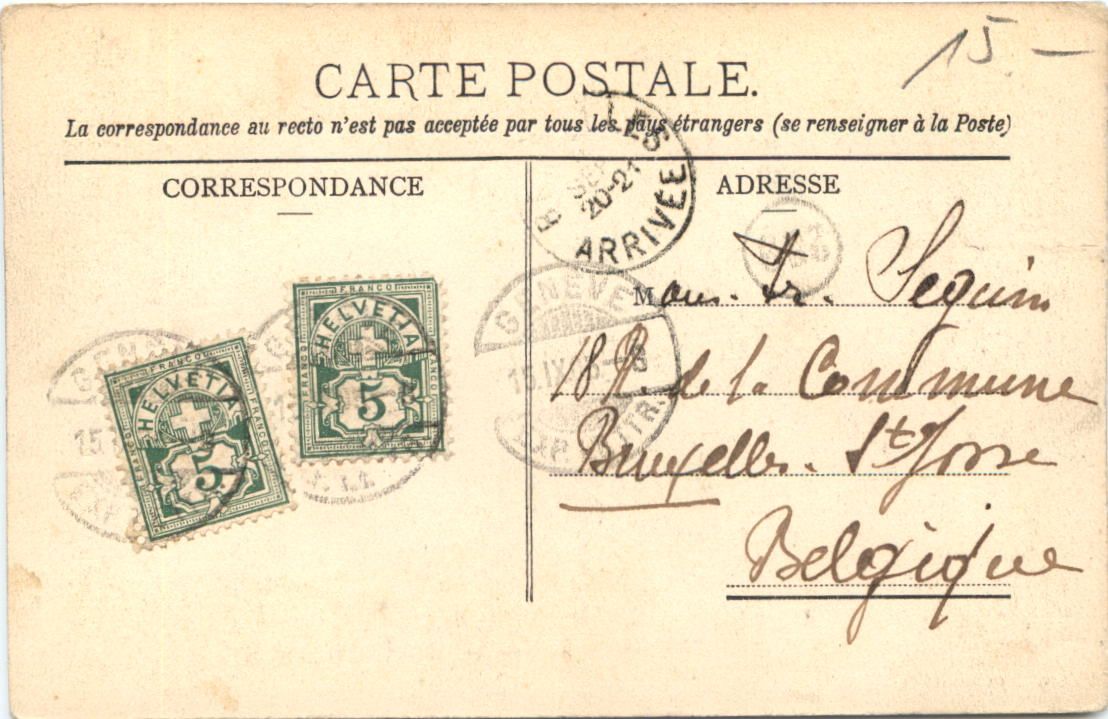 15.-
CARTE POSTALE.
La correspondance au recto n'est pas acceptée par tous les pays étrangers (se renseigner à la Poste)
CORRESPONDANCE
ADRESSE
LLES
20-21
ARRIVÉE
GENÈVE
15.IX
Mons. Fr. Seguin
18 R. de la Commune
Bruxelles. St Josse
Belgique
FRANCO
HELVETIA
FRANCO
FRANCO
5
FRANCO
HELVETIA
FRANCO
FRANCO
5